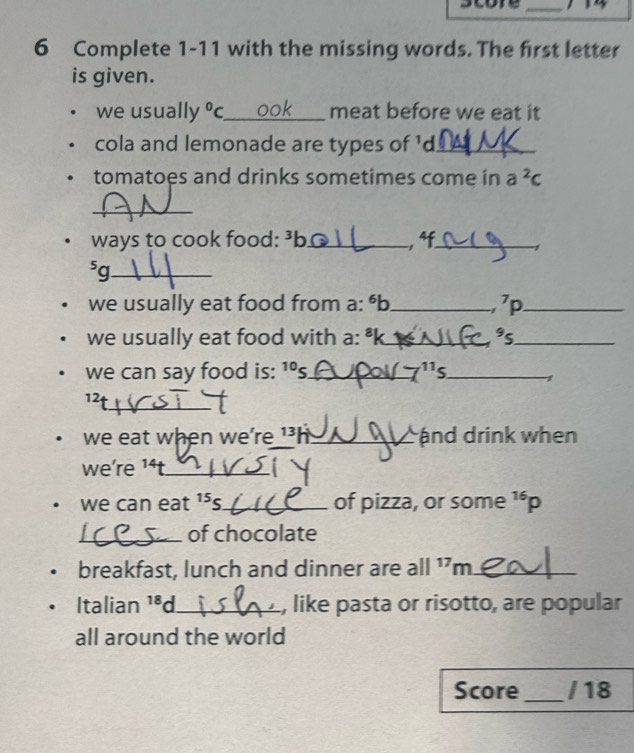 Score ____ / 14
6 Complete 1-11 with the missing words. The first letter
is given.
• we usually ⁰c ook meat before we eat it
• cola and lemonade are types of ¹d
• tomatoes and drinks sometimes come in a ²c
AN
• ways to cook food: ³b oil, ⁴f
⁵g
• we usually eat food from a: ⁶b________, ⁷p________
• we usually eat food with a: ⁸k NIfe, ⁹s________
• we can say food is: ¹⁰s ¹¹s________,
¹²t
• we eat when we're ¹³h and drink when
we're ¹⁴t hirsty
• we can eat ¹⁵s lice of pizza, or some ¹⁶p
ices of chocolate
• breakfast, lunch and dinner are all ¹⁷m eal
• Italian ¹⁸d ish, like pasta or risotto, are popular
all around the world
Score ____ / 18